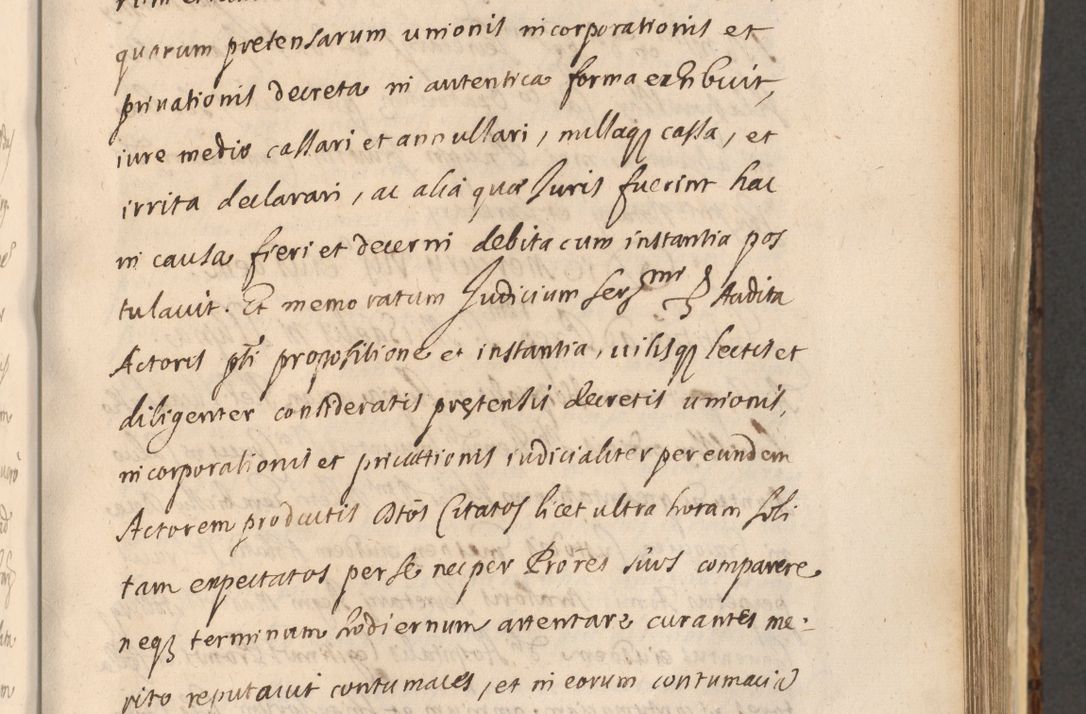 quarum pretensarum unionis incorporationis et
privationis decreta in autentica forma exhibuit,
iure medio cassari et annullari, nullaqꝫ cassa, et
irrita declarari, ac alia quæ Juris fuerint hac
in causa fieri et decerni debita cum instantia pos
tulavit. Et memoratum Judicium Serᵐⁱ Audita
Actoris pti propositione et instantia, visisqꝫ lectis et
diligenter consideratis pretensis decretis unionis,
incorporationis et privationis iudicialiter per eundem
Actorem productis Dtos Citatos licet ultra horam soli
tam expectatos per se nec per Prores suos comparere
neqꝫ terminum hodiernum attentare curantes me-
rito reputavit contumaces, et in eorum contumacia